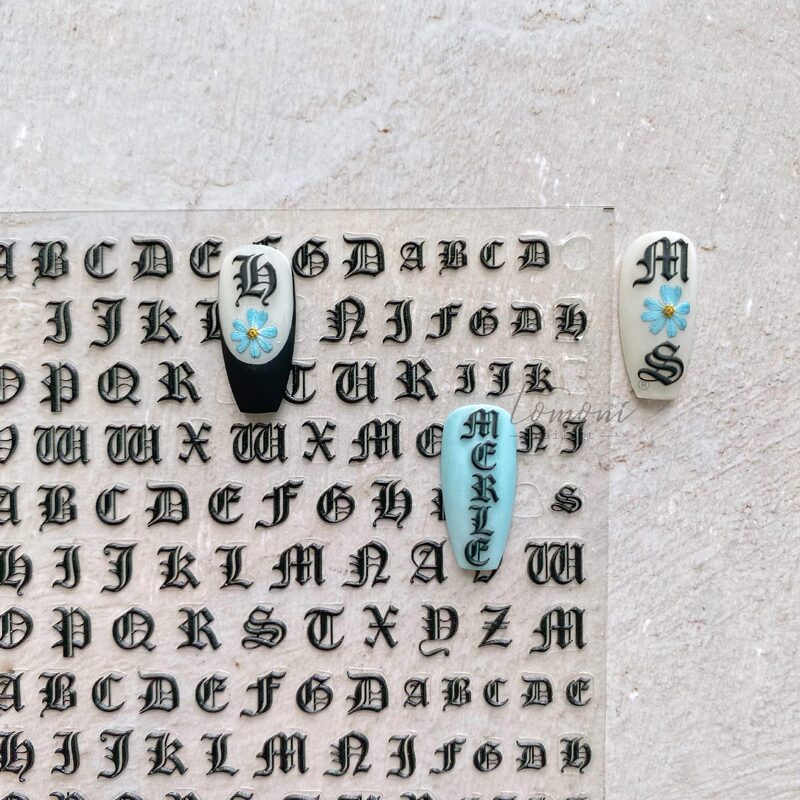 A B C D E F G D A B C D
I J K L N I F G D H
O P Q R T U R I J K
V W W X W X M O N J
A B C D E F G H S
H I J K L M N A W
O P Q R S T X Y Z M
A B C D E F G D A B C D E
H I J K L M N J F G D H
H
M
S
M
E
R
L
E
tomoni